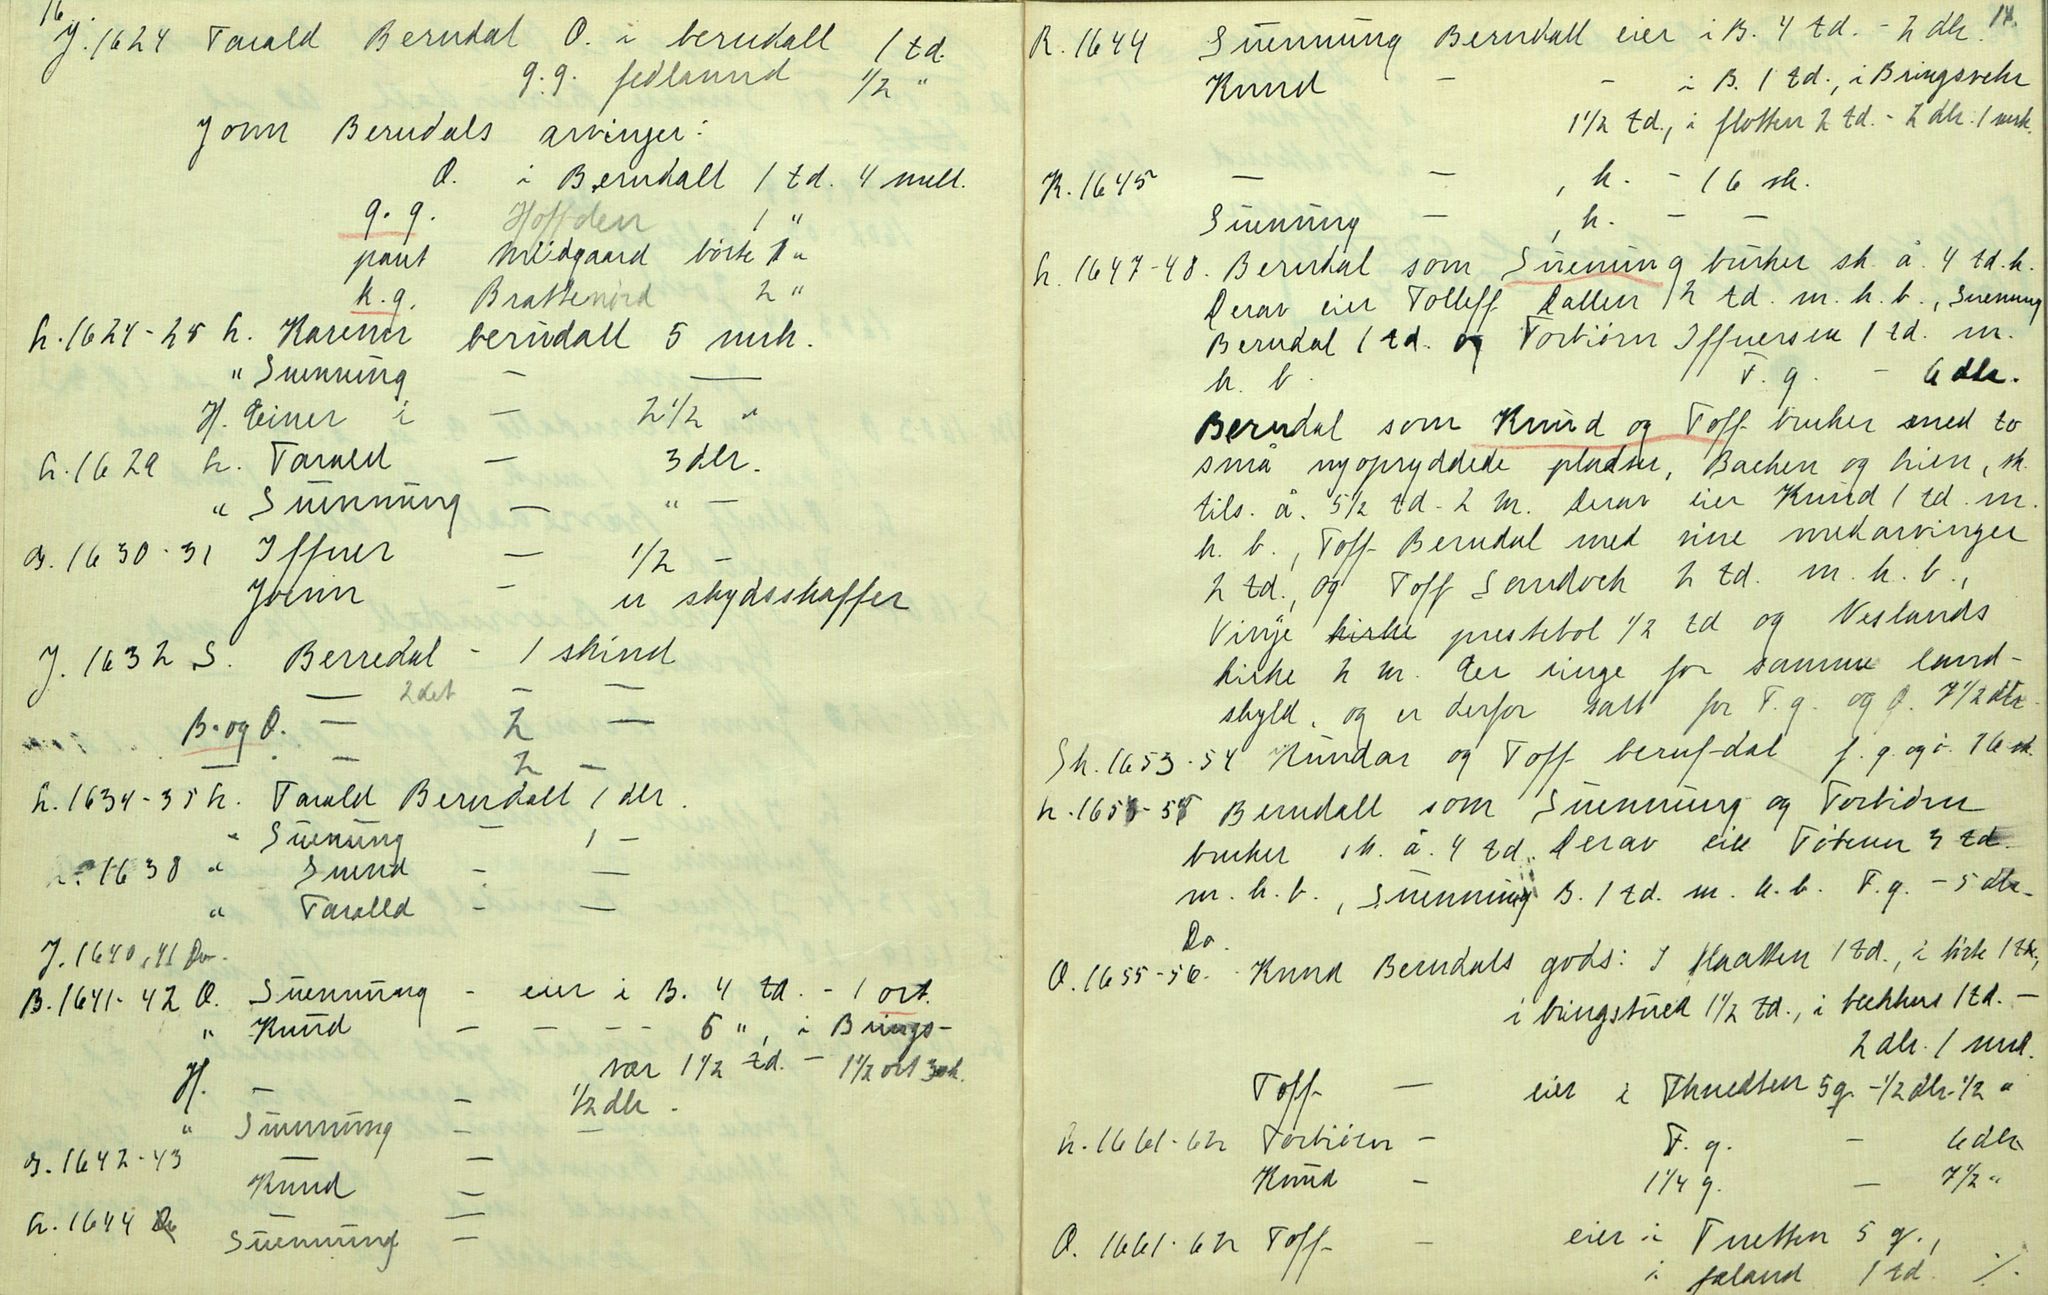 16
J. 1624 Tarald Berudal O. i berudall 1 td.
g.g. fedlannd 1/2 "
Jonn Berudals arvinger:
O. i Berudall 1 td. 4 mell.
g.g. Hoffden 1 "
pant Midgaard börte 1 "
k.g. Brattenörd 2 "
h. 1624-25 h. Karenn berudall 5 mrk.
" Suennüng — —
H. Einer i — 2 1/2 "
h. 1629 h. Tarald — 3 dlr.
" Suennüng — " —
B. 1630-31 Iffuer — 1/2 —
Joenn — er skydsskaffer
J. 1632 S. Berredal - 1 skind
— 2det — —
B. og O. — 2 —
— — 2 —
h. 1634-35 h. Tarald Berudall 1 dlr.
" Süenüng — 1 —
h. 1638 " Suend — —
" Taralld — —
J. 1640, 41 Do.
B. 1641-42 O. Süennüng - eier i B. 4 td. - 1 ort.
" Knüd — — — — 5 ", i Brings-
vær 1 1/2 td. - 1 1/2 ort 3 sk.
H. — — 1/2 dlr.
" Suennüng — —
B. 1642-43 — —
Knüd —
h. 1644 Do — —
Süennüng —
17.
R. 1644 Süennüng Berudall eier i B. 4 td. - 2 dlr.
Knud — — i B. 1 td., i Bringsvehr
1 1/2 td., i flotten 2 td. - 2 dlr. 1 mrk.
K. 1645 — — , h. - 16 sk.
Süenüng — , h. — —
h. 1647-48. Berudal som Suenüng bruker sk. å. 4 td. h.
Derav eier Tolleff Dallen 2 td. m. h. b., Suenung
Berudal 1 td. og Torbiörn Iffuersen 1 td. m.
h. b. F. g. - 6 dlr.
Berudal som Knüd og Toff bruker med to
små nyopryddede pladser, Bachen og Lien, sk.
tils. å. 5 1/2 td. 2 kr. Derav eier Knüd 1 td. m.
h. b., Toff Berudal med sine medarvinger
2 td., og Toff Sandoch 2 td. m. h. b.,
Vinje kirke prestebol 1/2 td og Neslands
kirke 2 kr. Gir ringe for samme land-
skyld, og er derfor satt for F. g. og O. 7 1/2 dlr.
Sk. 1653-54 Kündar og Toff beruf-dal f. g. og ö. 16 sk.
h. 1654-55 Berudall som Süennüng og Torbiörn
bruker sk. å. 4 td. Derav eier Totenn 3 td.
m. h. b., Süennüng B. 1 td. m. h. b. F. g. - 5 dlr.
Do.
O. 1655-56. Knud Berudals gods: I flaatten 1 td., i börte 1 td.,
i bringstued 1 1/2 td., i bechhus 1 td. -
2 dlr. 1 mrk.
Toff — eier i Thuedten 5 g. - 1/2 dlr. 1/2 "
h. 1661-62 Torbiörn — F. g. — 6 dlr.
Knüd — 1 1/4 g. — 7 1/2 "
O. 1661-62 Toff — eier i Tuetten 5 g.,
i faland 1 td. ./.